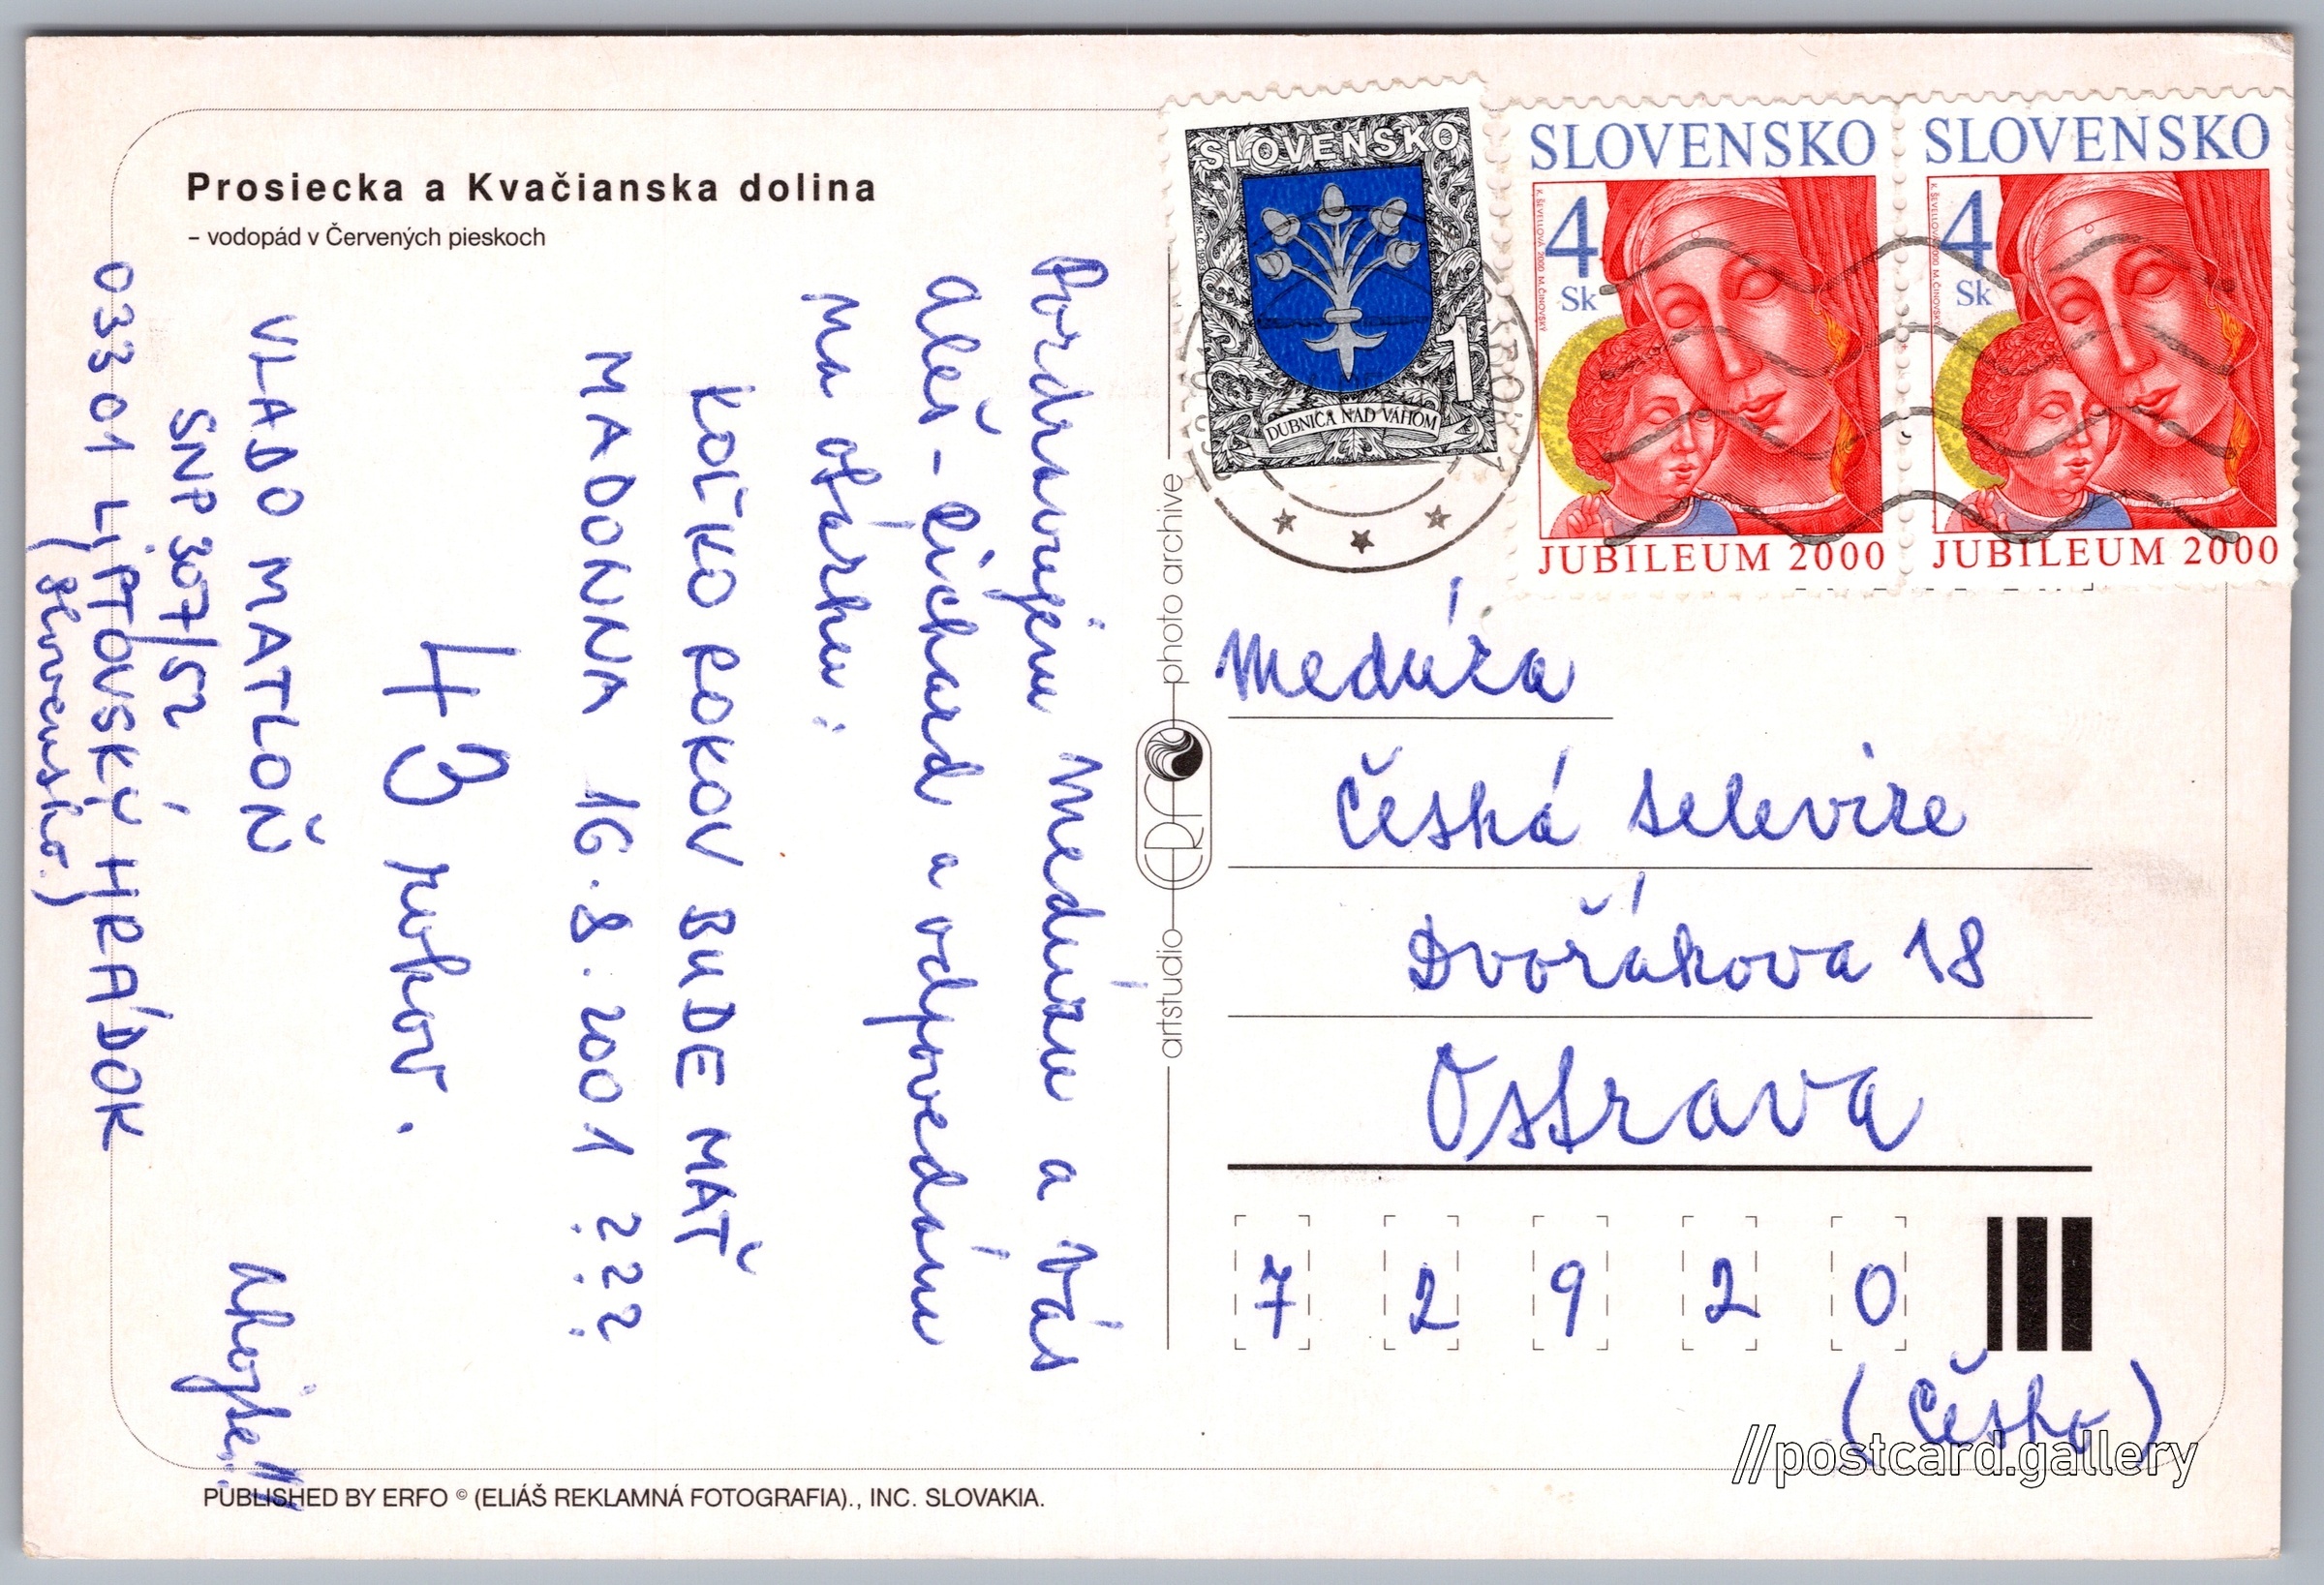 Prosiecka a Kvačianska dolina
– vodopád v Červených pieskoch
Pozdravujem Medúzu a Vás
Aleš - Richard a odpovedám
na otázku:
KOĽKO ROKOV BUDE MAŤ
MADONNA 16.8.2001 ???
43 rokov.
VLADO MATLOŇ
SNP 307/52
033 01 LIPTOVSKÝ HRÁDOK
(Slovensko.)
Ahojte!!!
PUBLISHED BY ERFO © (ELIÁŠ REKLAMNÁ FOTOGRAFIA)., INC. SLOVAKIA.
artstudio ERFO photo archive
SLOVENSKO
1
DUBNICA NAD VÁHOM
SLOVENSKO
4
Sk
K. ŠEVELLOVÁ 2000 M. ČINOVSKÝ
JUBILEUM 2000
SLOVENSKO
4
Sk
K. ŠEVELLOVÁ 2000 M. ČINOVSKÝ
JUBILEUM 2000
Medúza
Česká televize
Dvořákova 18
Ostrava
7 2 9 2 0
(Česko)
//postcard.gallery